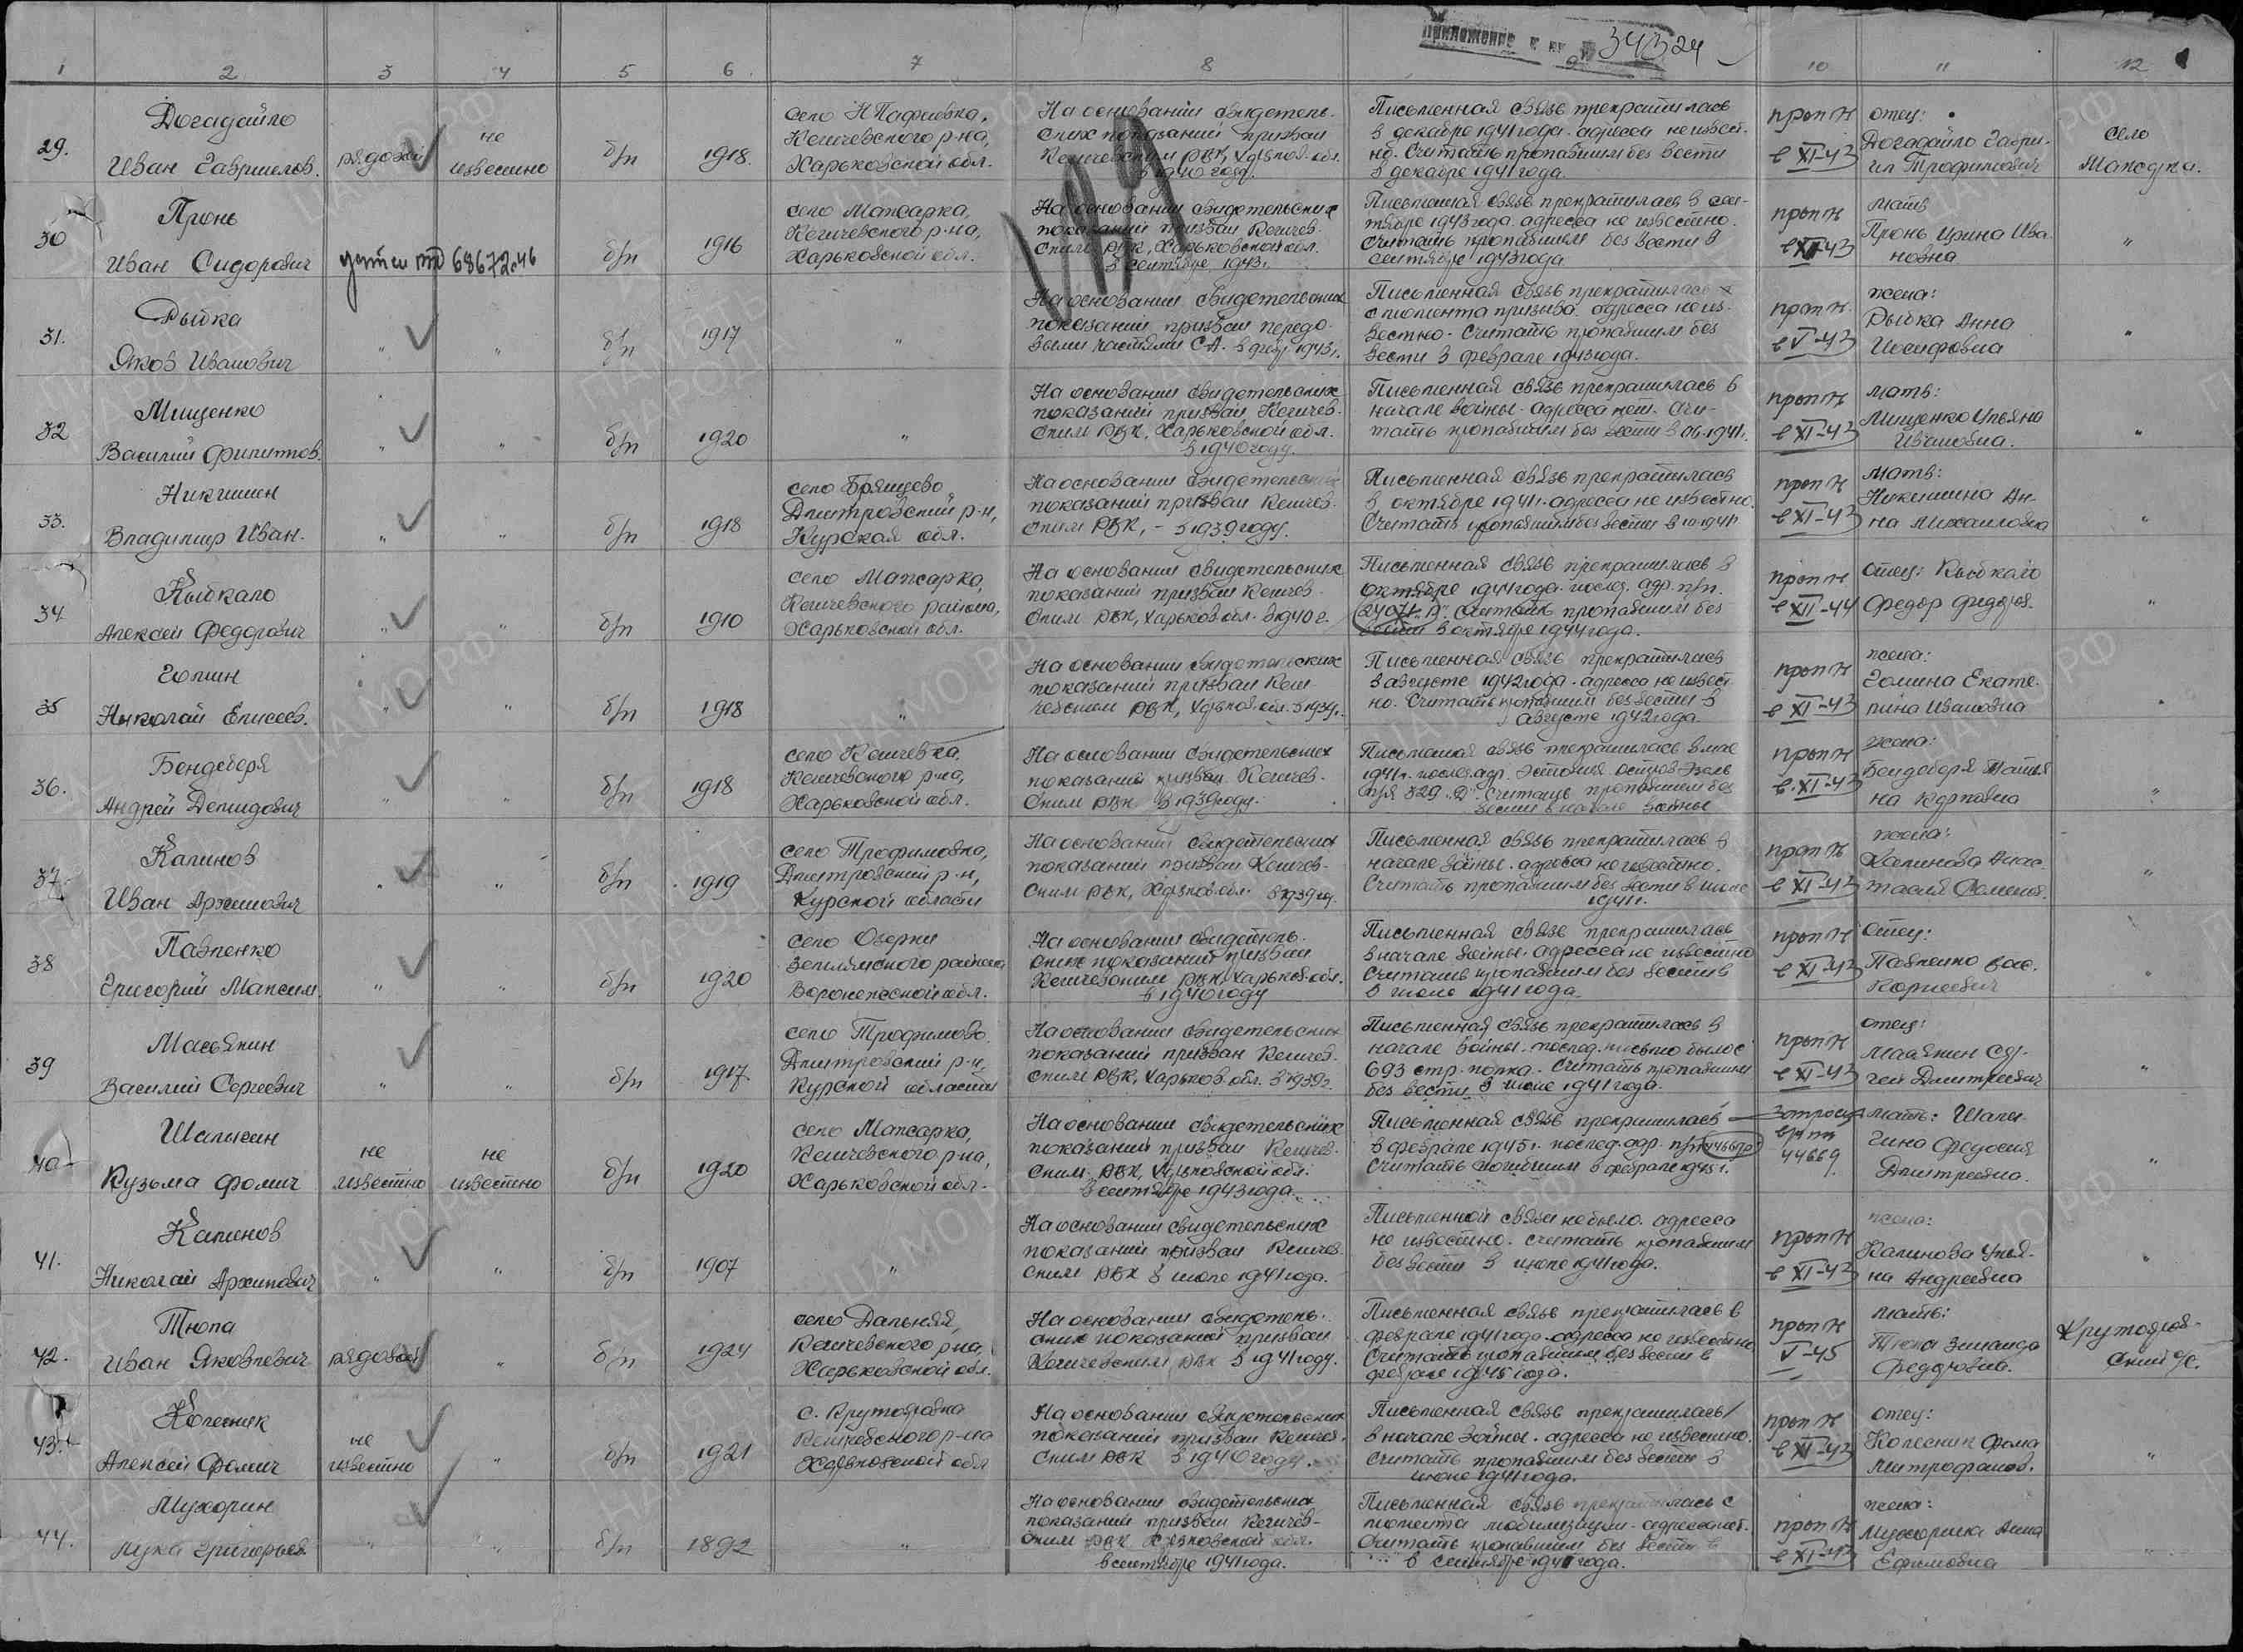 Приложение к вх 34324
1 2 3 4 5 6 7 8 10 11 12
29.
Догадайло
Иван Гаврилов.
рядовой
не
известно
б/п
1918.
Кегичевского р-на,
Харьковской обл.
На основании свидетель-
ских показаний призван
Кегичевским РВК, Харьков. обл.
в 1940 году.
Письменная связь прекратилась
в декабре 1941 года. адресса не извест-
но. Считать пропавшим без вести
в декабре 1941 года.
проп н
в XI-43
отец:
Догадайло Гаври-
ил Трофимович
село
30
Пронь
Иван Сидорович
б/п
1916
село Мажарка,
Кегичевского р-на,
Харьковской обл.
На основании свидетельских
показаний призван Кегичев-
ским РВК, Харьковской обл.
в сентябре 1943г.
Письменная связь прекратилась в сен-
тябре 1943 года адресса не известно.
Считать пропавшим без вести в
сентябре 1943 года
проп н
мать
Пронь Ирина Ива-
новна
"
31.
Рыбка
Яков Иванович
"
"
б/п
1917
"
На основании свидетельских
показаний призван передо-
выми частями С.А. в февр. 1943г.
Письменная связь прекратилась
с момента призыва. адресса не из-
вестно. Считать пропавшим без
вести в феврале 1943 года.
проп н
в V-43
жена:
Рыбка Анна
Иосифовна
"
32
Мищенко
Василий Филиппов.
"
"
б/п
1920
"
На основании свидетельских
показаний призван Кегичев-
ским РВК, Харьковской обл.
в 1940 году.
Письменная связь прекратилась в
начале войны. адресса нет. Счи-
тать пропавшим без вести в 06.1941г.
проп н
в XI-43
мать:
Мищенко Ульяна
Ивановна.
"
33.
Никишин
Владимир Иван.
"
"
б/п
1918
село Брянцево
Дмитровский р-н,
Курская обл.
На основании свидетельских
показаний призван Кегичев-
ским РВК, - в 1939 году.
Письменная связь прекратилась
в октябре 1941г. адресса не известно.
Считать пропавшим без вести в 10-1941г
проп н
в XI-43
мать:
Никишина Ан-
на Михайловна
"
34
Кыбкало
Алексей Федорович
"
"
б/п
1910
село Мажарка,
Кегичевского района,
Харьковской обл.
На основании свидетельских
показаний призван Кегичев-
ским РВК, Харьков обл. в 1940 г.
Письменная связь прекратилась в
октябре 1941 года. послед. адр. п/п.
Считать пропавшим без
вести в октябре 1944 года.
проп н
в XII-44
отец: Кыбкало
Федор Федоров.
"
35
Гомин
Николай Елисеев.
"
"
б/п
1918
"
На основании свидетельских
показаний призван Кеги-
чевским РВК, Харьков. обл. в 1939г.
Письменная связь прекратилась
в августе 1942 года. адресса не извест-
но. Считать пропавшим без вести в
августе 1942 года.
проп н
в XI-43
жена:
Гомина Екате-
рина Ивановна
"
36.
Бендеберя
Андрей Демидович
"
"
б/п
1918
село Кегичевка,
Кегичевского р-на,
Харьковской обл.
На основании свидетельских
показаний призван Кегичев-
ским РВК в 1939 году.
Письменная связь прекратилась в мае
1941г. послед. адр. Эстония остров Эзель
п/я 329 "Д". Считать пропавшим без
вести в начале войны
проп н
в XI-43
жена:
Бендеберя Татья
на Карповна
"
37
Калинов
Иван Архипович
"
"
б/п
1919
село Трофимовка,
Дмитровский р-н,
Курской области
На основании свидетельских
показаний призван Кегичев-
ским РВК, Харьков. обл. в 1939 г.
Письменная связь прекратилась в
начале войны. адресса не известно.
Считать пропавшим без вести в июне
1941г.
проп н
в XI-43
жена:
Калинова Анас-
тасия
"
38
Павленко
Григорий Максим.
"
"
б/п
1920
село Озерки
Землянского района
Воронежской обл.
На основании свидетель-
ских показаний призван
Кегичевским РВК, Харьков. обл.
в 1940 году
Письменная связь прекратилась
в начале войны. адресса не известно
Считать пропавшим без вести в
в июле 1941 года.
проп н
в XI-43
отец:
Павленко Вас.
Корнеевич
"
39
Масякин
Василий Сергеевич
"
"
б/п
1917
село Трофимово
Дмитровский р-н,
Курской области
На основании свидетельских
показаний призван Кегичев-
ским РВК, Харьков. обл. в 1939г.
Письменная связь прекратилась в
начале войны. послед. письмо было с
693 стр. полка. Считать пропавшим
без вести в июне 1941 года.
проп н
в XI-43
отец:
Масякин Сер-
гей Дмитриевич
"
40
Шалигин
Кузьма Фомич
не
известно
не
известно
б/п
1920
село Мажарка,
Кегичевского р-на,
Харьковской обл.
На основании свидетельских
показаний призван Кегичев-
ским РВК, Харьковской обл.
в сентябре 1943 года.
Письменная связь прекратилась
в феврале 1945г. послед. адр. п/п
Считать погибшим в феврале 1945г.
44669
мать: Шали-
гина Федосия
Дмитриевна.
"
41.
Калинов
Николай Архипович
"
"
б/п
1907
"
На основании свидетельских
показаний призван Кегичев-
ским РВК в июле 1941 года.
Письменной связи не было. адресса
не известно. Считать пропавшим
без вести в июле 1941 года.
проп н
в XI-43
жена:
Калинова Улья-
на Андреевна
"
42.
Тюпа
Иван Яковлевич
рядовой
"
б/п
1924
село Дальняя,
Кегичевского р-на,
Харьковской обл.
На основании свидетель-
ских показаний призван
Кегичевским РВК в 1941 году.
Письменная связь прекратилась в
феврале 1941 года. адресса не известно
Считать пропавшим без вести в
феврале 1945 года.
проп н
V-45
мать:
Тюпа Зинаида
Федоровна.
Крутояров-
ский с/с.
43.
Колесник
Алексей Фомич
не
известно
"
б/п
1921
с. Крутоярка
Кегичевского р-на
Харьковской обл
На основании свидетельских
показаний призван Кегичев-
ским РВК в 1940 году.
Письменная связь прекратилась
в начале войны. адресса не известно.
Считать пропавшим без вести в
июне 1941 года.
проп н
в XI-43
отец:
Колесник Фома
Митрофанов.
"
44.
Мухорин
Лука Григорьев.
"
"
б/п
1892
"
На основании свидетельских
показаний призван Кегичев-
ским РВК Харьковской обл.
в сентябре 1941 года.
Письменная связь прекратилась с
момента мобилизации. адресса нет.
Считать пропавшим без вести в
в сентябре 1941 года.
проп н
в XI-43
жена:
Мухорина Анна
Ефимовна
"